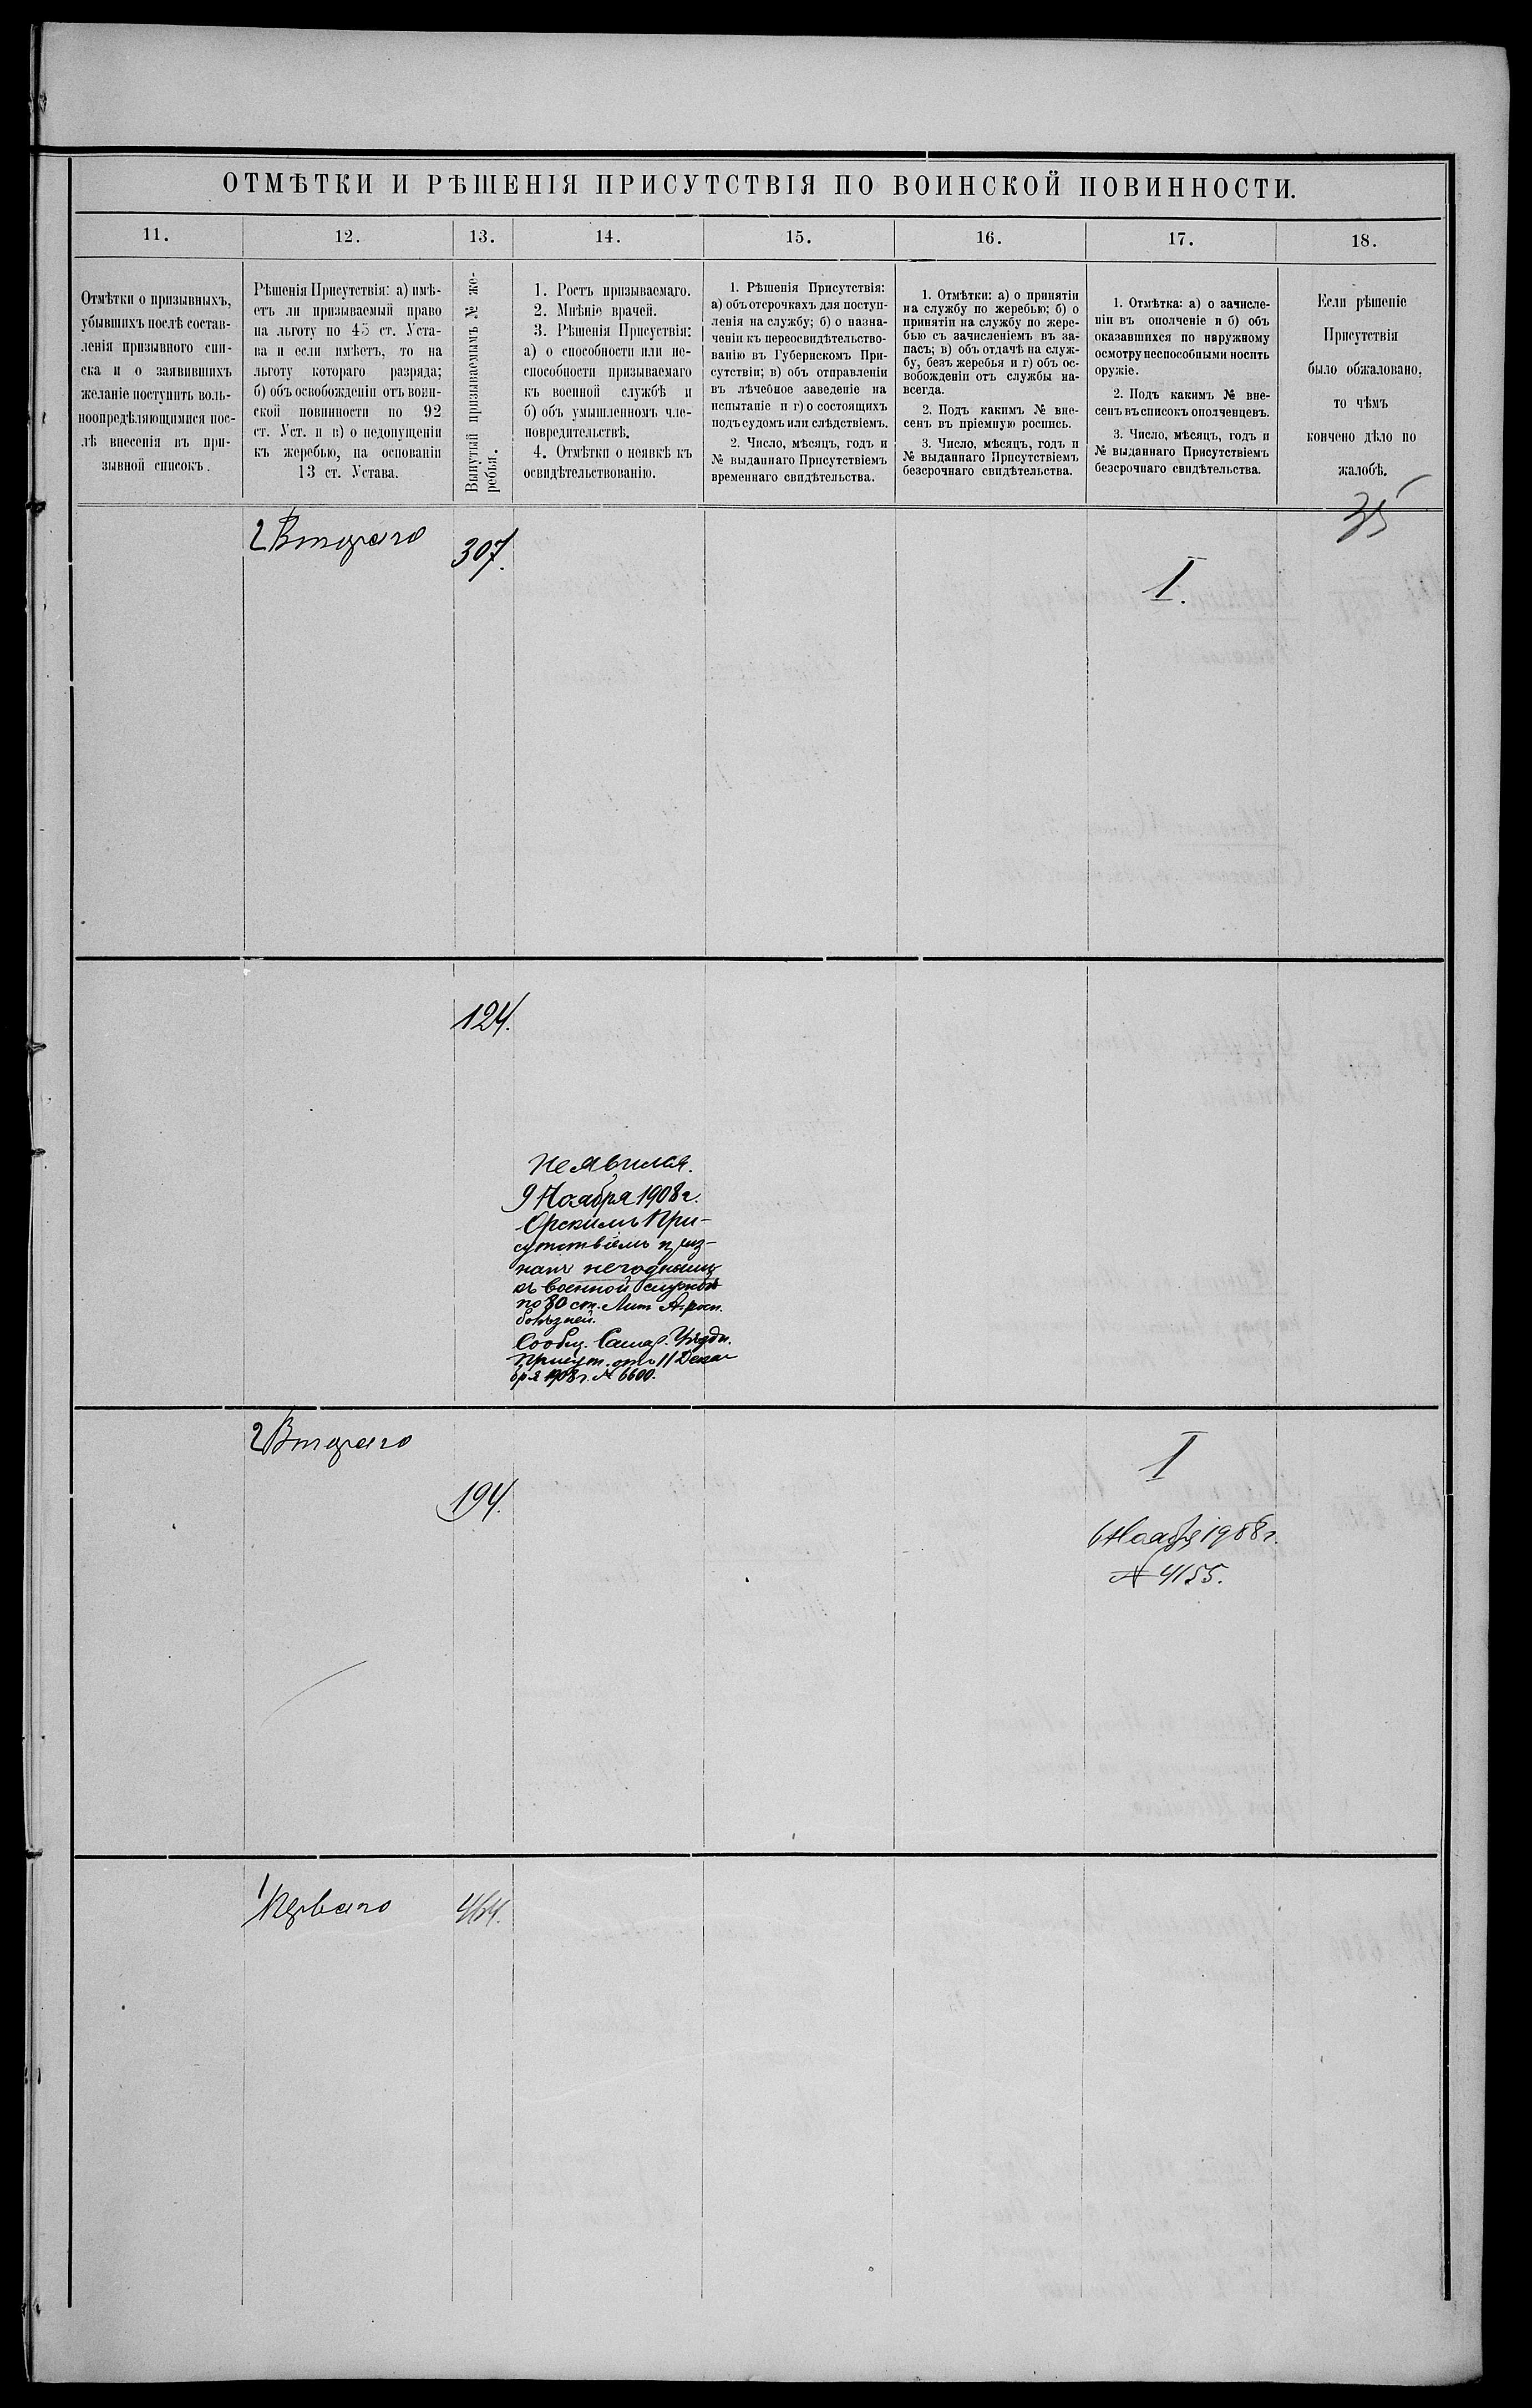 ОТМѢТКИ И РѢШЕНІЯ ПРИСУТСТВІЯ ПО ВОИНСКОЙ ПОВИННОСТИ.
11.
12.
13.
14.
15.
16.
17.
18.
Отмѣтки о призывныхъ,
убывшихъ послѣ состав-
ленія призывного спи-
ска и о заявившихъ
желаніе поступить воль-
ноопредѣляющимися пос-
лѣ внесенія въ при-
зывной списокъ.
Рѣшенія Присутствія: а) имѣ-
етъ ли призываемый право
на льготу по 45 ст. Уста-
ва и если имѣетъ, то на
льготу котораго разряда;
б) объ освобожденіи отъ воин-
ской повинности по 92
ст. Уст. и в) о недопущеніи
къ жеребью, на основаніи
13 ст. Устава.
Вынутый призываемымъ № же-
ребья.
1. Ростъ призываемаго.
2. Мнѣніе врачей.
3. Рѣшенія Присуствія:
а) о способности или не-
способности призываемаго
къ военной службѣ и
б) объ умышленномъ чле-
новредительствѣ.
4. Отмѣтки о неявкѣ къ
освидѣтельствованію.
1. Рѣшенія Присутствія:
а) объ отсрочкахъ для поступ-
ленія на службу; б) о назна-
ченіи къ переосвидѣтельство-
ванію въ Губернскомъ При-
сутствіи; в) объ отправленіи
въ лѣчебное заведеніе на
испытаніе и г) о состоящихъ
подъ судомъ или слѣдствіемъ.
2. Число, мѣсяцъ, годъ и
№ выданнаго Присутствіемъ
временнаго свидѣтельства.
1. Отмѣтки: а) о принятіи
на службу по жеребью; б) о
принятіи на службу по жере-
бью съ зачисленіемъ въ за-
пасъ; в) объ отдачѣ на служ-
бу, безъ жеребья и г) объ ос-
вобожденіи отъ службы на-
всегда.
2. Подъ какимъ № вне-
сенъ въ пріемную роспись.
3. Число, мѣсяцъ, годъ и
№ выданнаго Присутствіемъ
безсрочнаго свидѣтельства.
1. Отмѣтка: а) о зачисле-
ніи въ ополченіе и б) объ
оказавшихся по наружному
осмотру неспособными носить
оружіе.
2. Подъ какимъ № вне-
сенъ въ списокъ ополченцевъ.
3. Число, мѣсяцъ, годъ и
№ выданнаго Присутствіемъ
безсрочнаго свидѣтельства.
Если рѣшеніе
Присутствія
было обжаловано,
то чѣмъ
кончено дѣло по
жалобѣ.
35
2 Втораго
307.
I.
124.
Не явился.
9 Ноября 1908 г.
Орскимъ При-
сутствіемъ приз-
нанъ негоднымъ
къ военной службѣ
по 80 ст. Лит А. росп.
болѣзней.
Сообщ. Самар. Уѣздн.
Присут. отъ 11 Декаб-
ря 1908 г. № 6600.
2 Втораго
194.
I
6 Ноября 1908 г.
№ 4155.
1 Перваго
464.